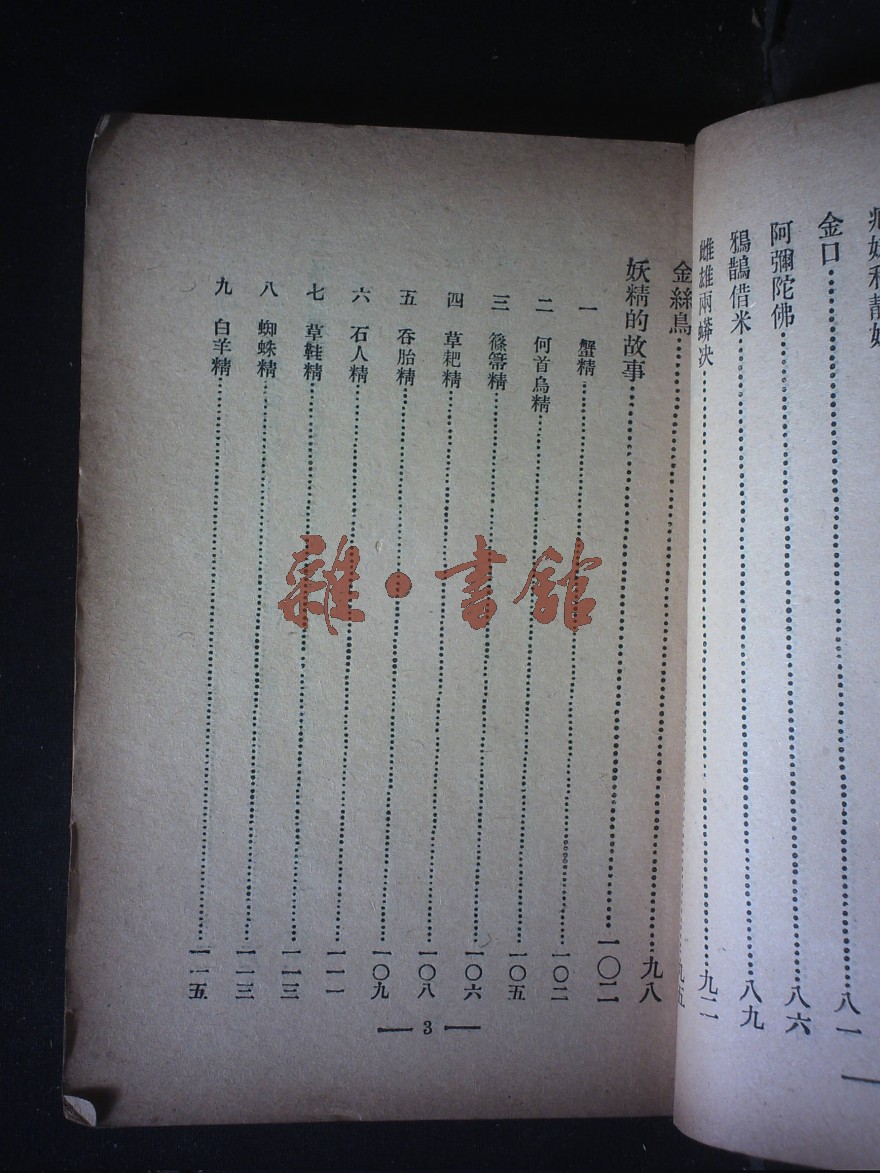 金口……八一
阿彌陀佛……八六
鴉鵲借米……八九
雌雄兩蟒决……九二
九五
金絲鳥……九八
妖精的故事……一〇二
一 蟹精……一〇二
二 何首烏精……一〇五
三 篠箒精……一〇六
四 草耙精……一〇八
五 吞胎精……一〇九
六 石人精……一一一
七 草鞋精……一一三
八 蜘蛛精……一一三
九 白羊精……一一五
— 3 —
雜·書館